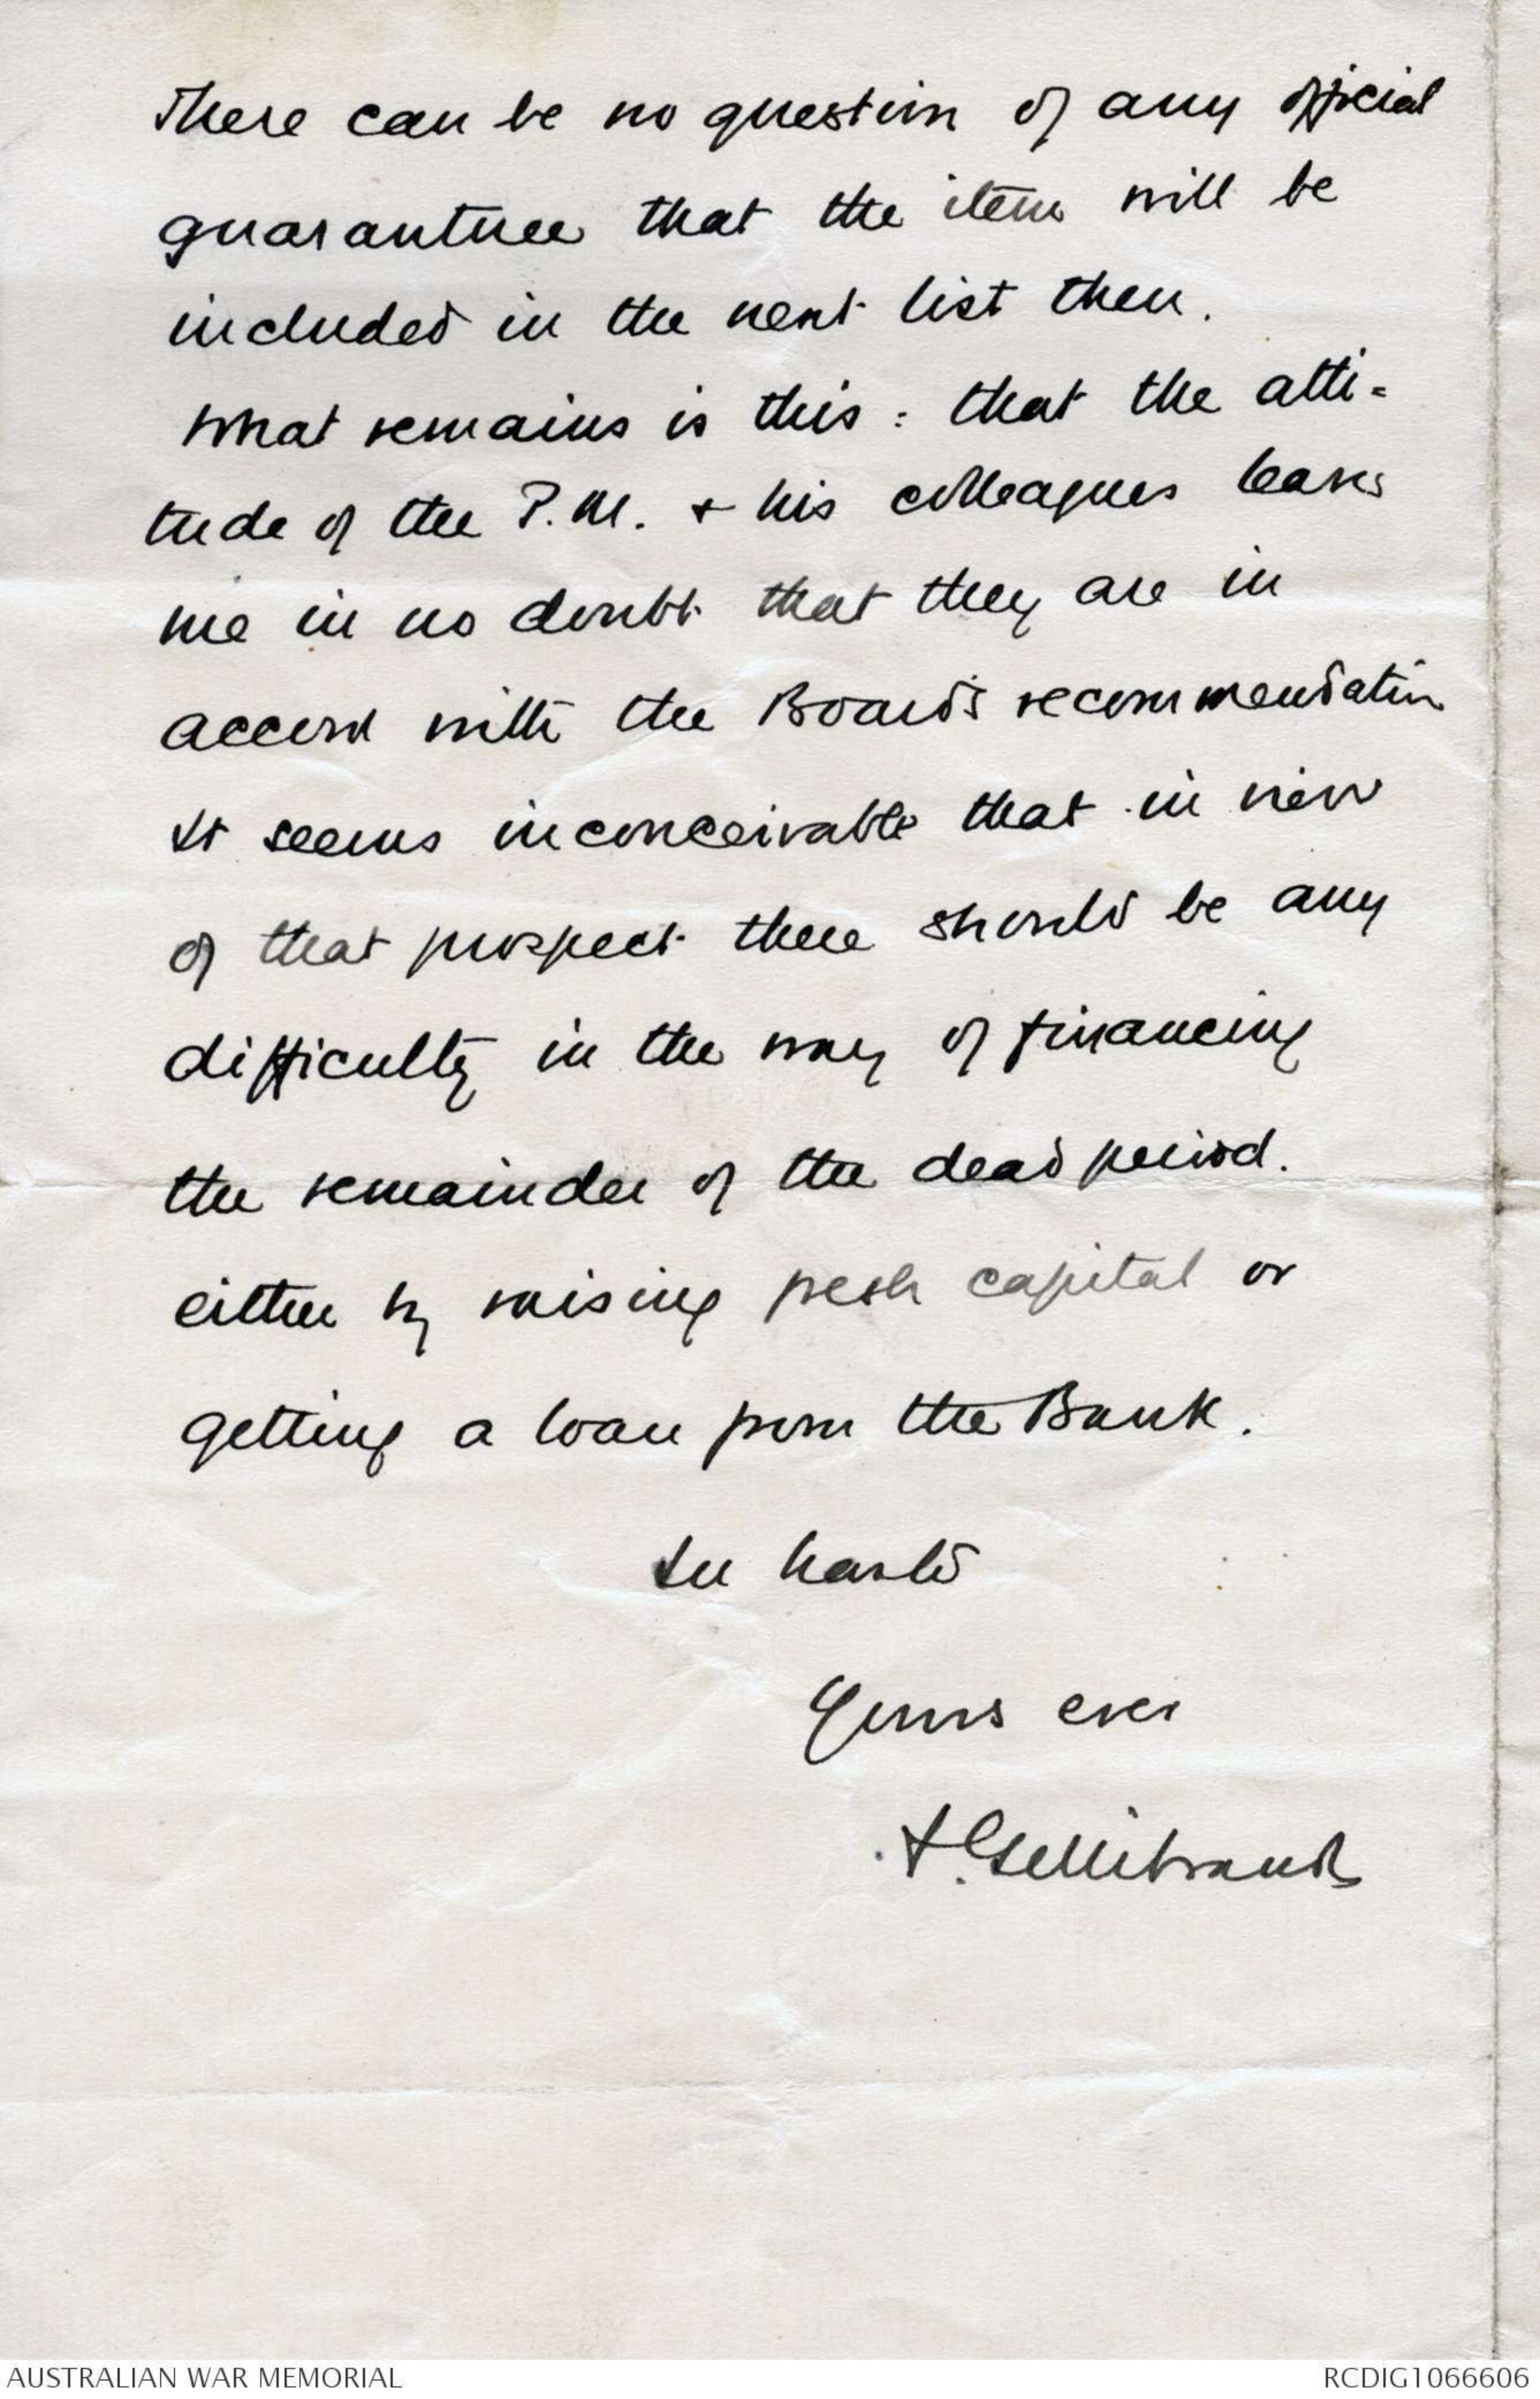 There can be no question of any official
guarantuee that the item will be
included in the next list then.
What remains is this: that the atti=
tude of the P.M. + his colleagues leaves
me in no doubt that they are in
accord with the Board's recommendation
It seems inconceivable that in view
of that prospect there should be any
difficulty in the way of financing
the remainder of the dead period.
either by raising fresh capital or
getting a loan from the Bank.
In haste
Yours ever
J. Gellibrand
AUSTRALIAN WAR MEMORIAL
RCDIG1066606